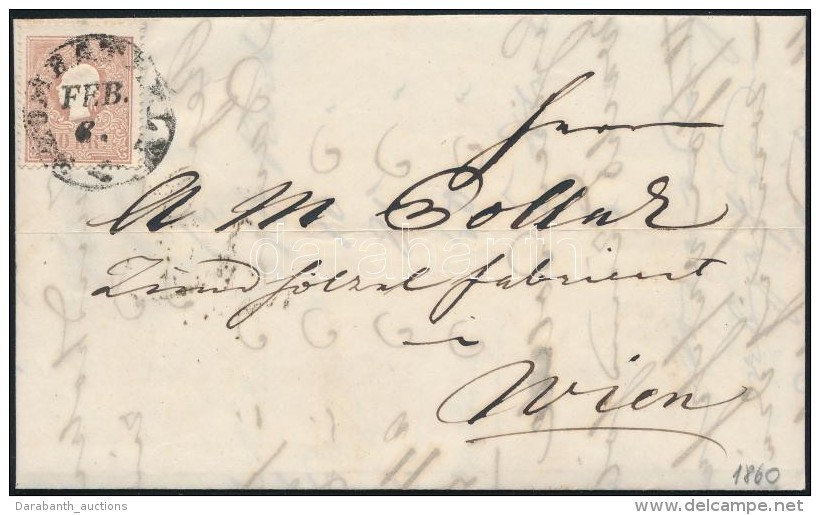 FEB.
6.
Herrn
A M Pollak
Zündhölzel fabricant
in
Wien
1860
darabanth
Darabanth_auctions
delcampe.net